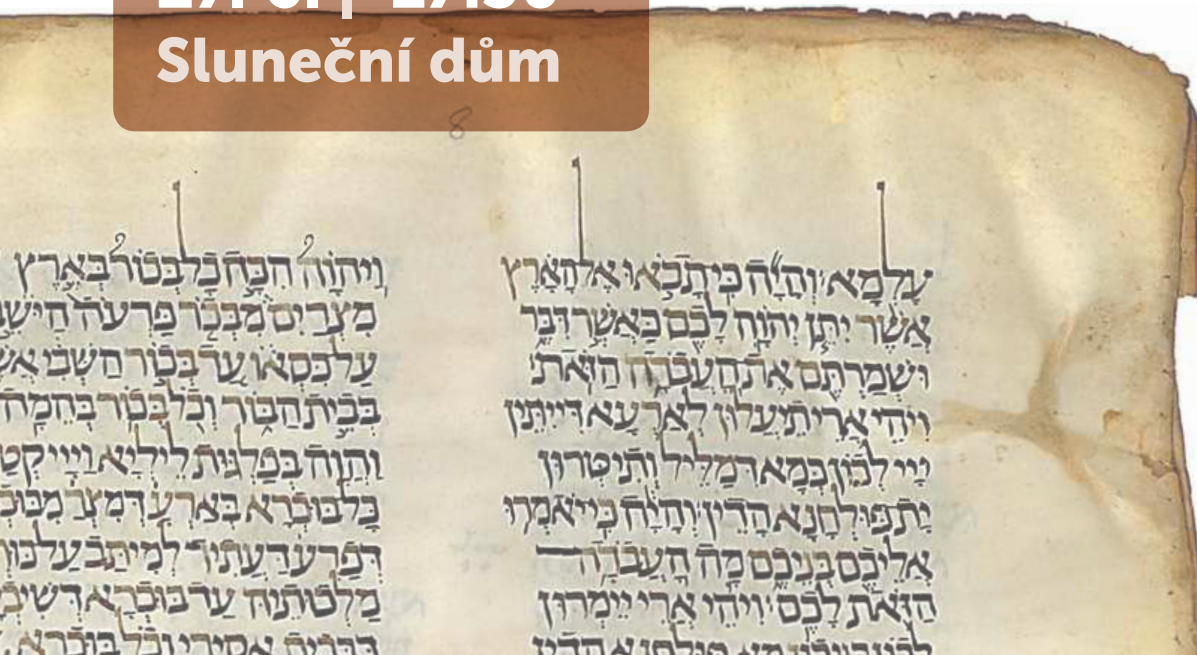 Sluneční dům
8
עלמא והיה כי תבאו אל הארץ
אשר יתן יהוה לכם כאשר דבר
ושמרתם את העבדה הזאת׃
ויהי ארי תיעלון לארעא דייתין
ויי לכון כמא דמליל ותיטרון
ית פולחנא הדין׃ והיה כי יאמרו
אליכם בניכם מה העבדה
הזאת לכם׃ ויהי ארי יימרון
לכון בניכון מא פולחנא הדין
ויהוה הכה כל בכור בארץ
מצרים מבכר פרעה
על כסאו עד בכור השבי
בבית הבור וכל בכור בהמה
והוה בפלגות ליליא
כל בוכרא בארעא
דפרעה דעתיד למיתב על
מלכותיה עד בוכרא
דבבית אסירי וכל בוכרא